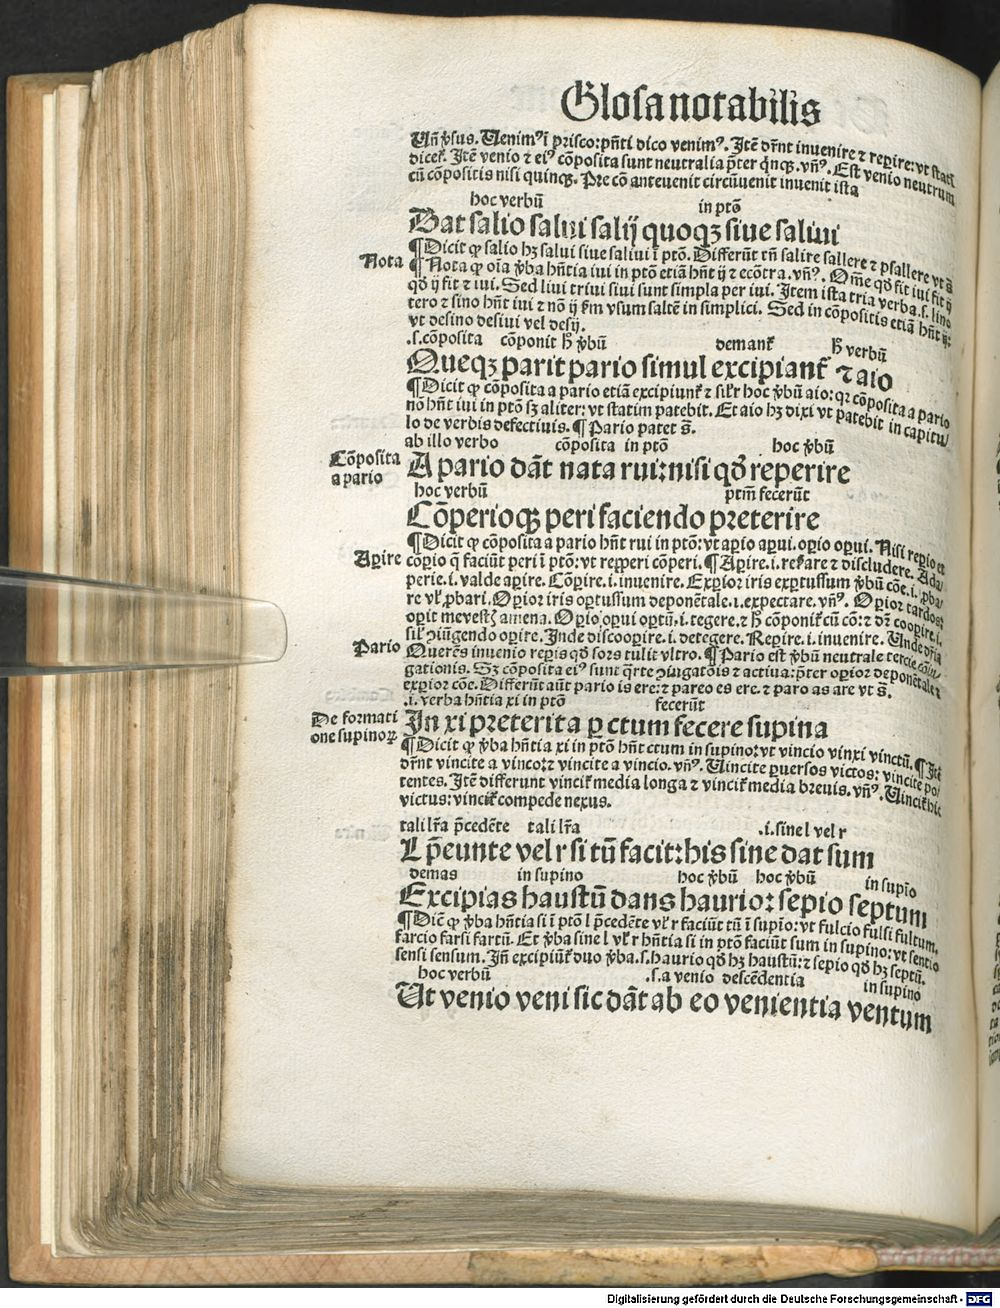 Glosa notabilis
Uñ ꝟsus. Uenimꝰ ī prisco: pñti dico venimꝰ. Itē dr̄nt inuenire ⁊ reꝑire: vt stati
dicet᷑. Itē venio ⁊ eiꝰ cōposita sunt neutralia p̄ter q̇nqꝫ. vñꝰ. Est venio neutrum
cū cōpositis nisi quinqꝫ. Pre cō anteuenit circūuenit inuenit ista
hoc verbū in ptō
Dat salio salui salij quoqꝫ siue saliui
¶ Dicit ꝙ salio hꝫ salui siue saliui ī ptō. Differūt tñ salire sallere ⁊ psallere vt s̄
Nota
¶ Nota ꝙ oīa ꝟba hñtia iui in ptō etiā hñt ij ⁊ ecōtra. vñꝰ. Om̄e qd̄ fit iui fit ij
qd̄ ij fit ⁊ iui. Sed liui triui siui sunt simpla per iui. Item ista tria verba .s. lino
tero ⁊ sino hñt iui ⁊ nō ij s̄m vsum saltē in simplici. Sed in cōpositis etiā hñt ij:
vt desino desiui vel desij.
.s. cōposita cōponit h̄ ꝟbū demant᷑ h̄ verbū
Queqꝫ parit pario simul excipiant᷑ ⁊ aio
¶ Dicit ꝙ cōposita a pario etiā excipiunt᷑ ⁊ sil̄r hoc ꝟbū aio: qꝛ cōposita a pario
nō hñt iui in ptō sꝫ aliter: vt statim patebit. Et aio hꝫ dixi vt patebit in capitu/
lo de verbis defectiuis. ¶ Pario patet s̄.
ab illo verbo cōposita in ptō hoc ꝟbū
Cōposita
a pario
A pario dāt nata rui: nisi qd̄ reperire
hoc verbū ptm̄ fecerūt
Cōperioqꝫ peri faciendo preterire
¶ Dicit ꝙ cōposita a pario hñt rui in ptō: vt aꝑio aꝑui. oꝑio oꝑui. Nisi reꝑio et
Aꝑire
cōꝑio q̄ faciūt peri ī ptō: vt reꝑꝑeri cōperi. ¶ Aꝑire .i. reẜare ⁊ discludere. Ada/
perie .i. valde aꝑire. Cōꝑire .i. inuenire. Exꝑior iris exꝑtussum ꝟbū cōe .i. ꝓba/
re vl̄ ꝓbari. Oꝑior iris oꝑtussum deponētale .i. expectare. vñꝰ. Oꝑior tardos:
oꝑit me vest amena. Oꝑio oꝑui oꝑtū .i. tegere. ⁊ h̄ cōponit᷑ cū cō: ⁊ dꝛ cooꝑire .i.
oꝑire. Inde discooꝑire .i. detegere. Reꝑire .i. inuenire. Unde dr̄ia
Pario
Querēs inuenio reꝑis qd̄ sors tulit vltro. ¶ Pario est ꝟbū neutrale tercie cōiu/
gationis. Sꝫ cōposita eiꝰ sunt q̄rte ꝯiugatōis ⁊ actiua: p̄ter oꝑior deponētale ⁊
exꝑior cōe. Differūt aūt pario is ere: ⁊ pareo es ere. ⁊ paro as are vt s̄.
.i. verba hñtia xi in ptō fecerūt
De formati
one supinoꝝ
In xi preterita ꝑ ctum fecere supina
¶ Dicit ꝙ ꝟba hñtia xi in ptō hñt ctum in supino: vt vincio vinxi vinctū. ¶ Itē
dr̄nt vincite a vinco: ⁊ vincite a vincio. vñꝰ. Uincite ꝑuersos victos: vincite po/
tentes. Itē differunt vincit᷑ media longa ⁊ vincit᷑ media breuis. vñꝰ. Uincit᷑ hic
victus: vincit᷑ compede nexus.
tali lr̄a p̄cedēte tali lr̄a .i. sine l vel r
L p̄eunte vel r si tū facit: his sine dat sum
demas in supino hoc ꝟbū hoc ꝟbū in supīo
Excipias haustū dans haurio: sepio septum
¶ Dic̄ ꝙ ꝟba hñtia si ī ptō l p̄cedēte vl̄ r faciūt tū ī supīo: vt fulcio fulsi fultum.
farcio farsi fartū. Et ꝟba sine l vl̄ r hñtia si in ptō faciūt sum in supino: vt sentio
sensi sensum. Iñ excipiūt᷑ duo ꝟba .s. haurio qd̄ hꝫ haustū: ⁊ sepio qd̄ hꝫ septū.
hoc verbū .s. a venio descēdentia in supino
Ut venio veni sic dāt ab eo venientia ventum
Digitalisierung gefördert durch die Deutsche Forschungsgemeinschaft - DFG